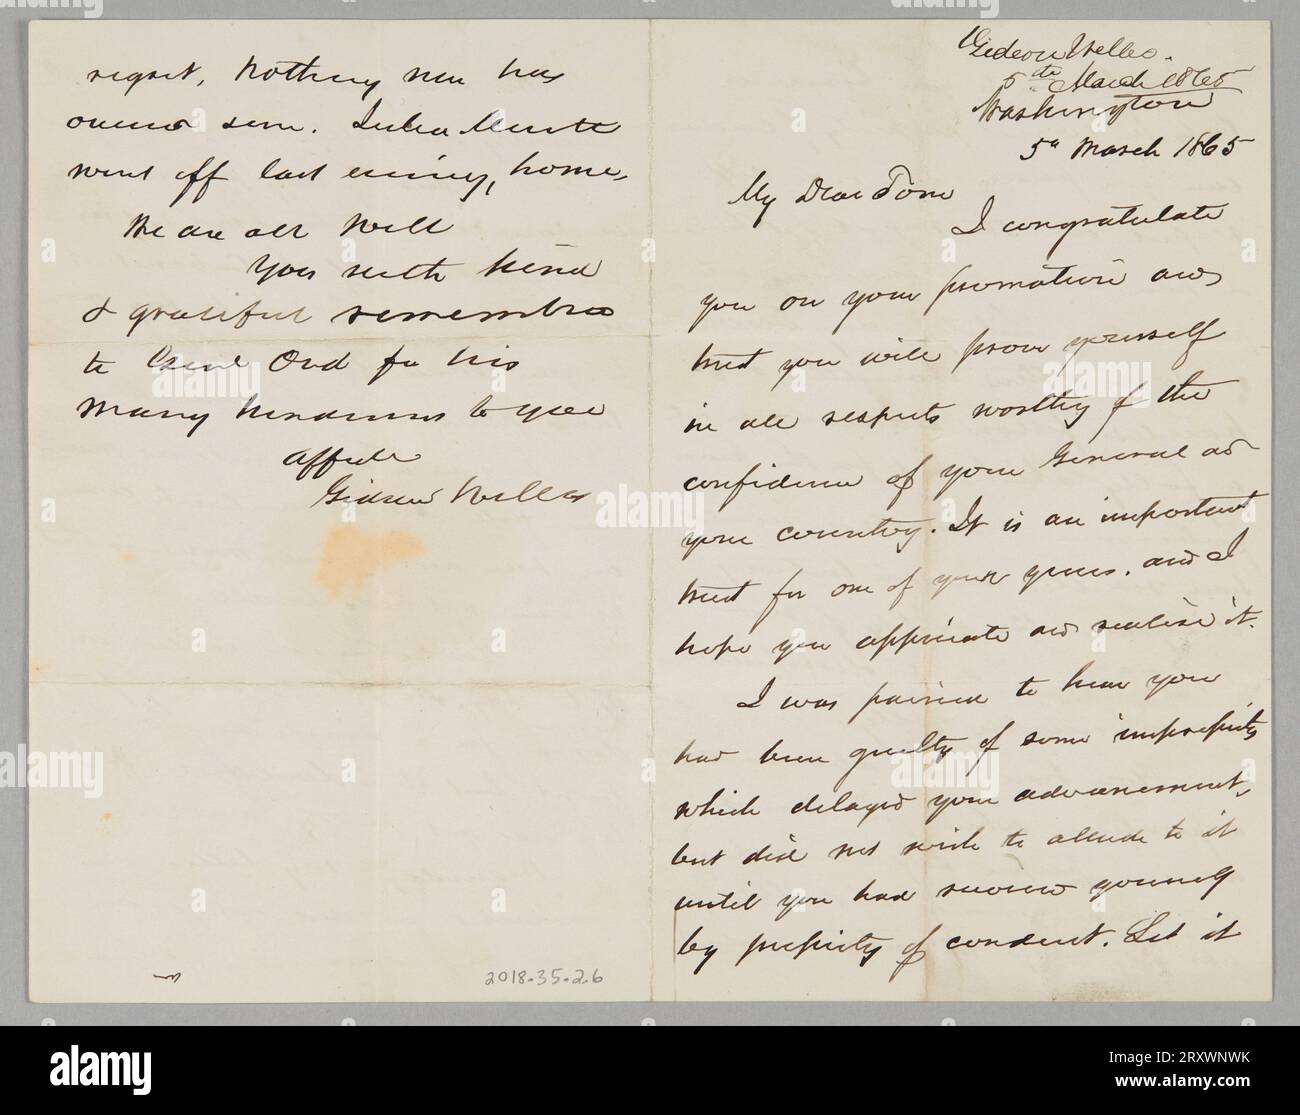 Gideon Welles.
5th March 1865
Washington
5h March 1865
My Dear Tom
I congratulate
you on your promotion and
trust you will prove yourself
in all respects worthy of the
confidence of your General and
your country. It is an important
trust for one of your years, and I
hope you appreciate and realise it.
I was pained to hear you
had been guilty of some impropriety
which delayed your advancement,
but did not wish to allude to it
until you had
by propriety of conduct. Let it
regret. Nothing new has
since.
went off last evening, home,
We are all well
You with kind
& grateful remembrance
to Genl Ord for his
many kindnesses to you
affte
Gideon Welles
2018.35.2.6
alamy
Image ID: 2RXWNWK
www.alamy.com